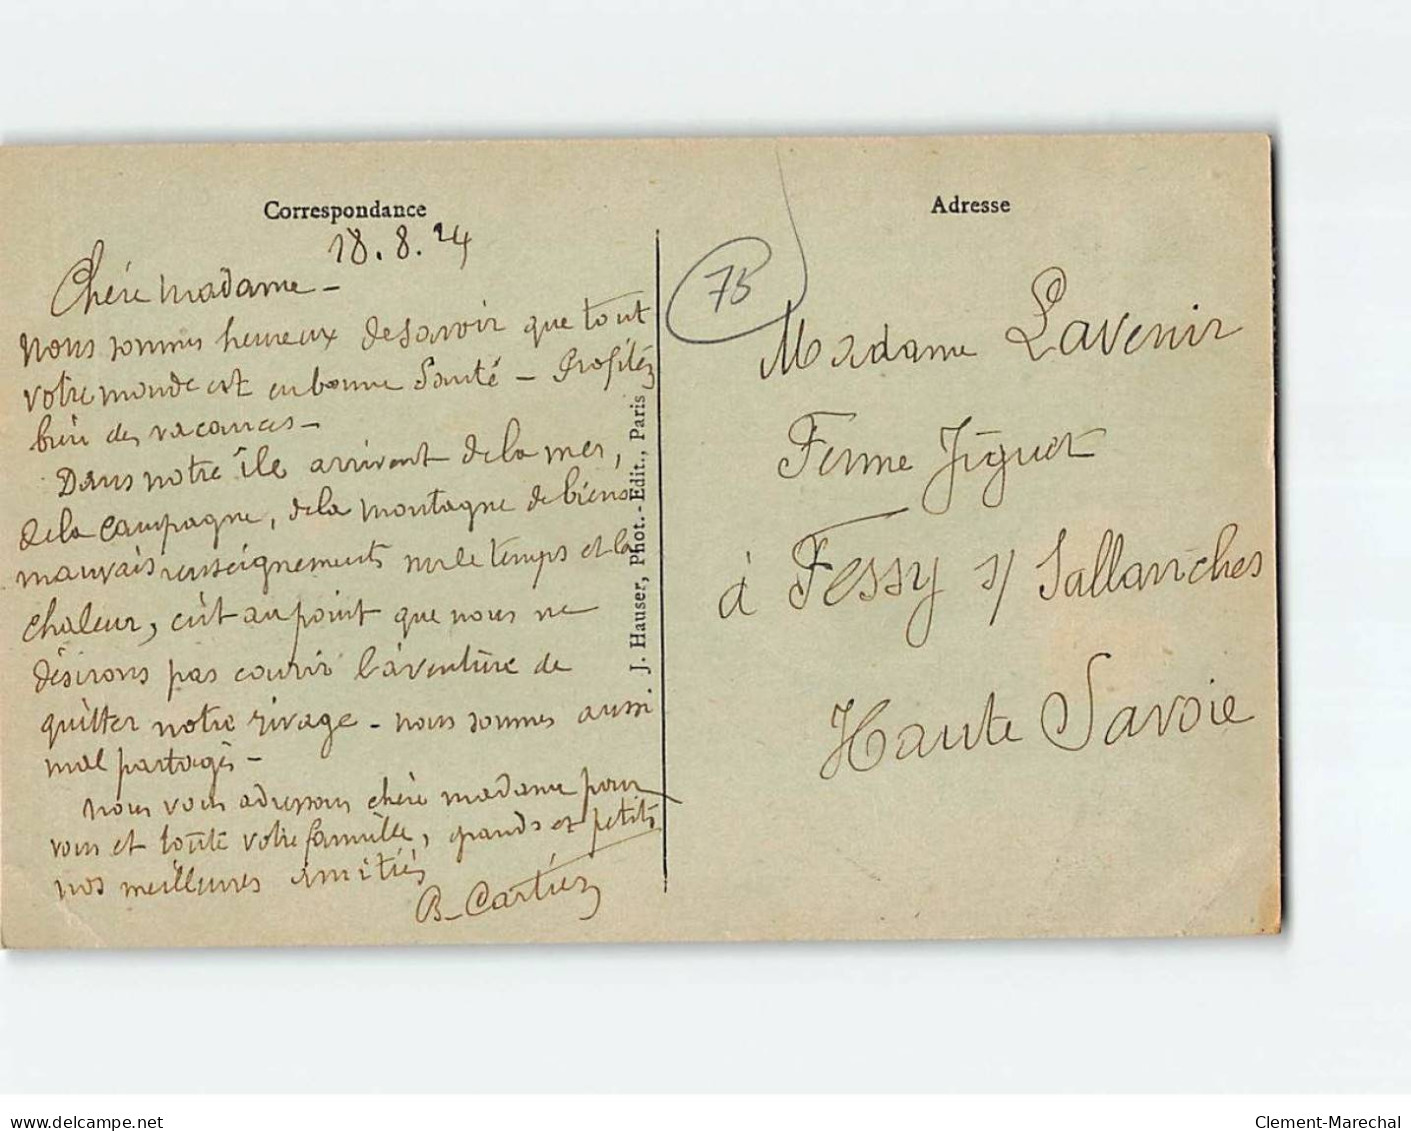 Correspondance
18.8.24
Chère madame -
nous sommes heureux de savoir que tout
votre monde est en bonne Santé - Profitez
bien des vacances -
Dans notre île arrivent de la mer,
de la campagne, de la montagne de biens
mauvais renseignements sur le temps et la
chaleur, c'est au point que nous ne
désirons pas courir l'aventure de
quitter notre rivage - nous sommes aussi
mal partagés -
nous vous adressons chère madame pour
vous et toute votre famille, grands et petits
nos meilleures amitiés
B. Cartier
J. Hauser, Phot.-Edit., Paris
Adresse
75
Madame Lavenir
Ferme Jiguet
à Fessy s/ Sallanches
Haute Savoie
delcampe.net
Clement-Marechal